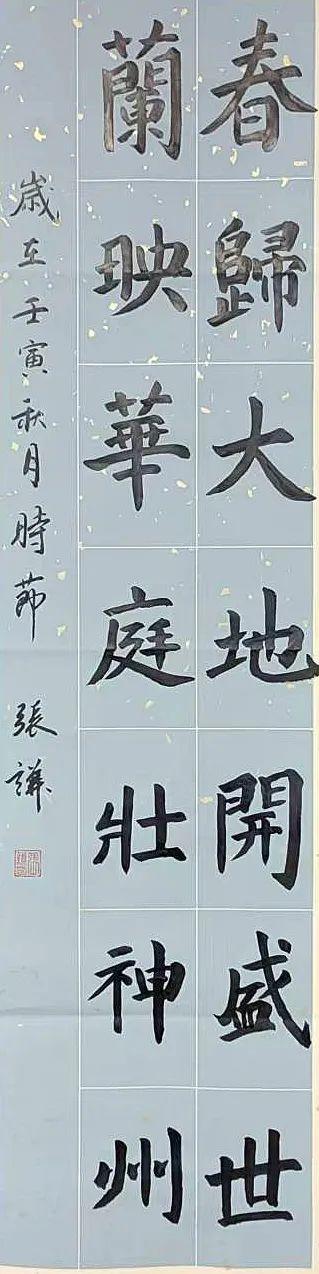 春歸大地開盛世
蘭映華庭壯神州
歲在壬寅秋月時節 張譁